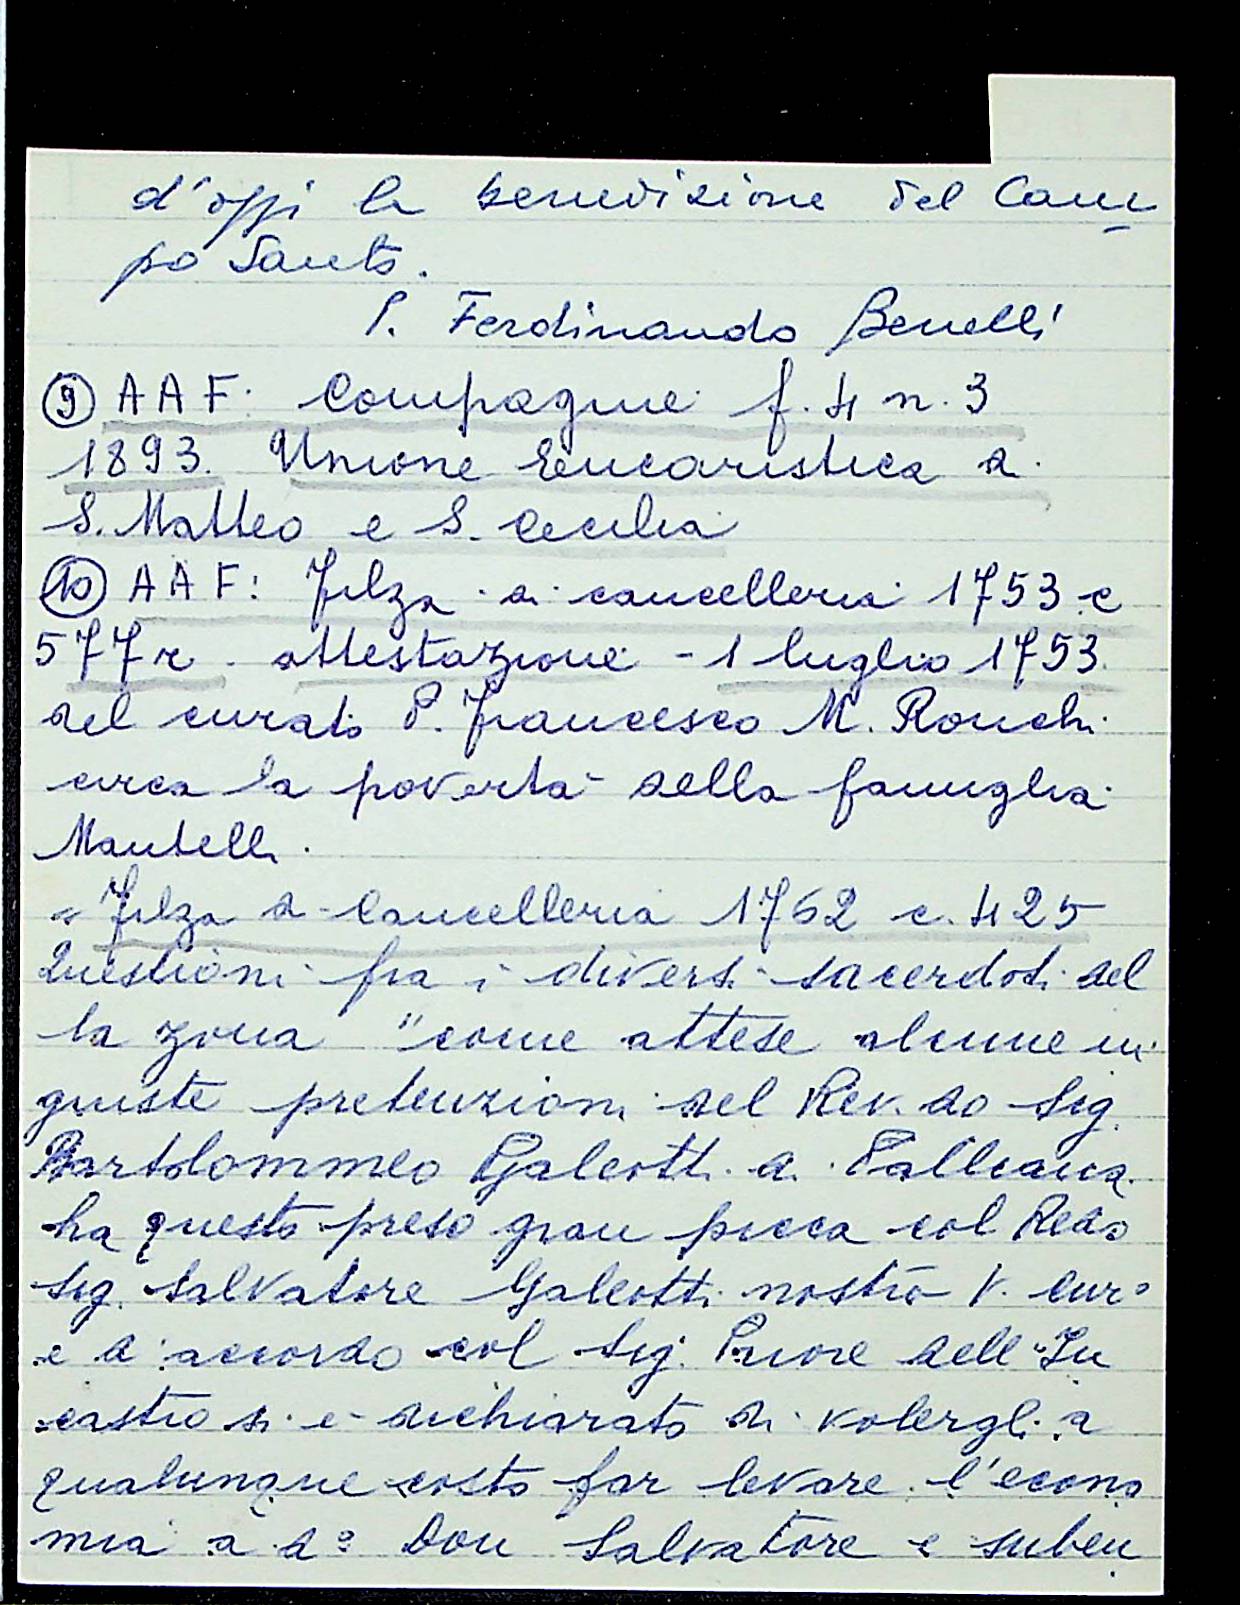 d'oggi la benedizione del Cam
po Santo.
P. Ferdinando Benelli
9 AAF: Compagnie f. 4 n. 3
1893. Unione Eucaristica di
S. Matteo e S. Cecilia
10 AAF: Filza di cancelleria 1753 c
577r. attestazione - 1 luglio 1753
del curato P. Francesco M. Ronchi
circa la povertà della famiglia
Mantelli.
" Filza di Cancelleria 1762 c. 425
Questioni fra i diversi sacerdoti del
la zona "come attese alcune in
giuste pretenzioni del Rev. do Sig.
Bartolommeo Galeotti di
ha questo preso gran picca col Redo
Sig. Salvatore Galeotti nostro V. Curo
e d'accordo col Sig. Priore dell'In
castro si è dichiarato di volergli a
qualunque costo far levare l'econo
mia a do Don Salvatore e suben